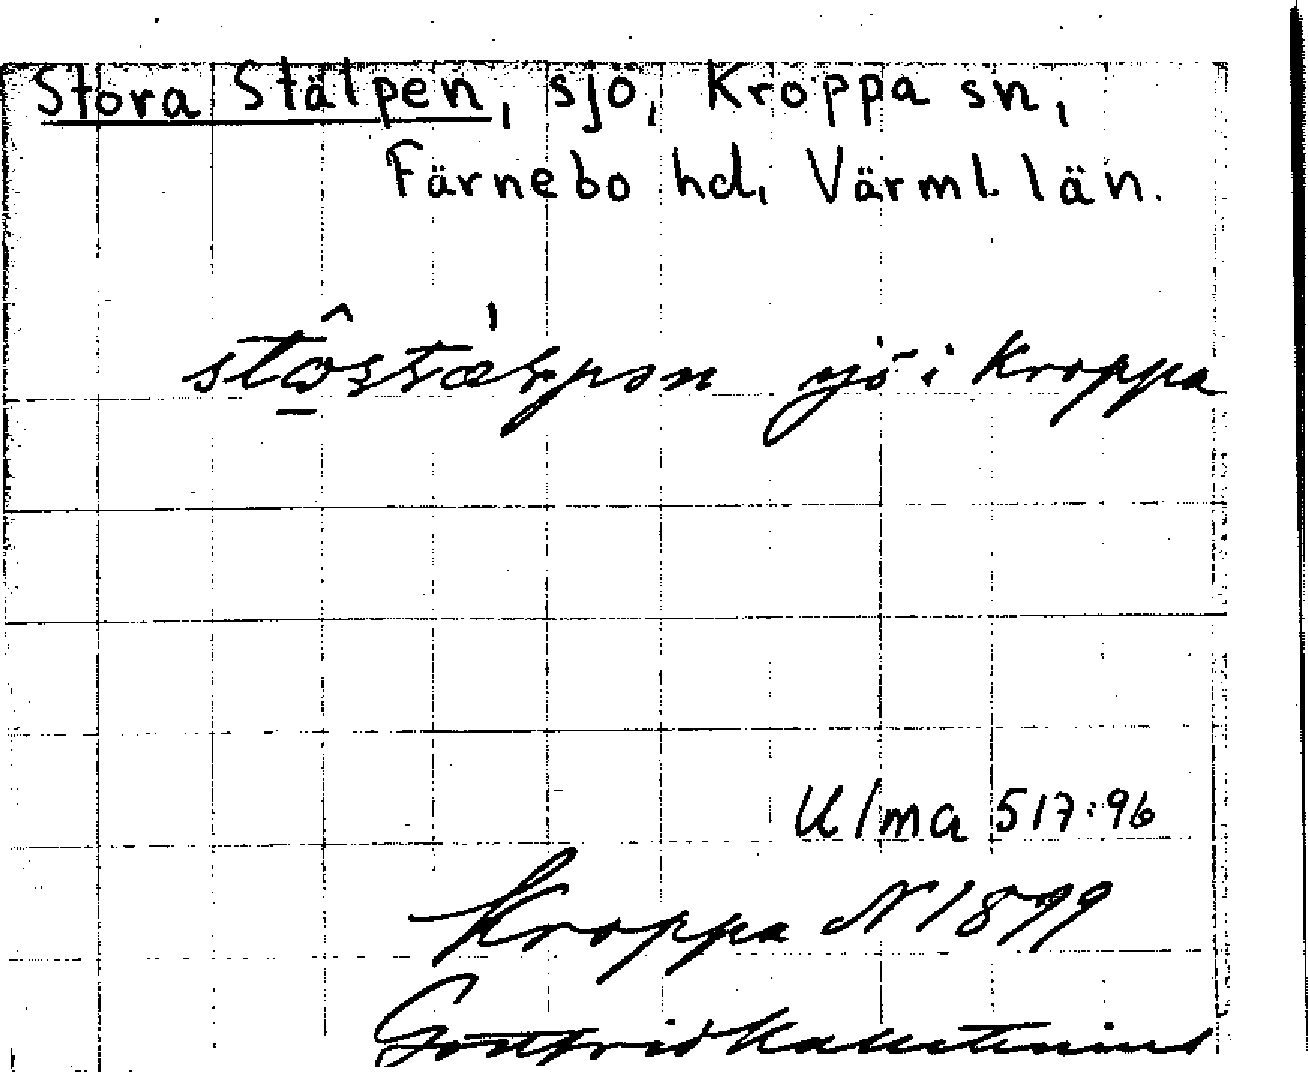 Stora Stälpen, sjö, Kroppa sn,
Färnebo hd, Värml. län.
sjö i Kroppa
Ulma 517:96
Kroppa N 1899
Gottfrid Kallstenius